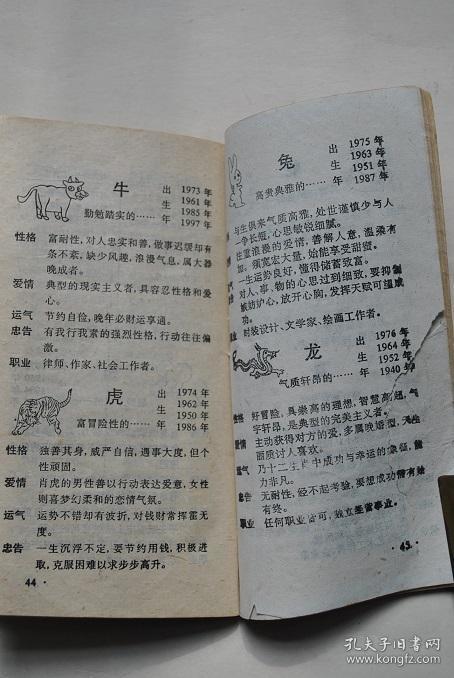 牛
出 1973年
1961年
生 1985年
勤勉踏实的…… 年 1997年
性格 富耐性，对人忠实和善，做事迟缓却有
条不紊，缺少风趣，浪漫气息，属大器
晚成者。
爱情 典型的现实主义者，具容忍性格和爱
心。
运气 节约自俭，晚年必财运亨通。
忠告 有我行我素的强烈性格，行动往往偏
激。
职业 律师、作家、社会工作者。
虎
出 1974年
1962年
生 1950年
富冒险性的…… 年 1986年
性格 独善其身，威严自信，遇事大度，但个
性顽固。
爱情 肖虎的男性善以行动表达爱意，女性
则喜梦幻柔和的恋情气氛。
运气 运势不错却有波折，对钱财常挥霍无
度。
忠告 一生沉浮不定，要节约用钱，积极进
取，克服困难以求步步高升。
44·
兔
出 1975年
1963年
生 1951年
高贵典雅的…… 年 1987年
与生俱来气质高雅，处世谨慎少与人
争长短，心思敏锐细腻。
注重浪漫的爱情，善解人意，温柔有
加。须宽宏大量，始能享受甜蜜。
一生运势良好，懂得储蓄致富。
对人、事、物的心思过到细致，要抑制
嫉妨妒心，放开心胸，发挥天赋可溢成
功。
职业 时装设计、文学家、绘画工作者。
龙
出 1976年
1964年
生 1952年
气质轩昂的…… 年 1940年
性格 好冒险，具崇高的理想，智慧高超，气
宇轩昂，是典型的完美主义者。
爱情 主动获得对方的爱，多属晚婚型，
质讨人喜欢。
运气 乃十二生肖中成功与幸运的象征，能
力非凡。
忠告 无耐性，经不起考验，要想成功需有始
有终。
职业 任何职业皆可，独立经营事业。
·45·
孔夫子旧书网
kongfz.com